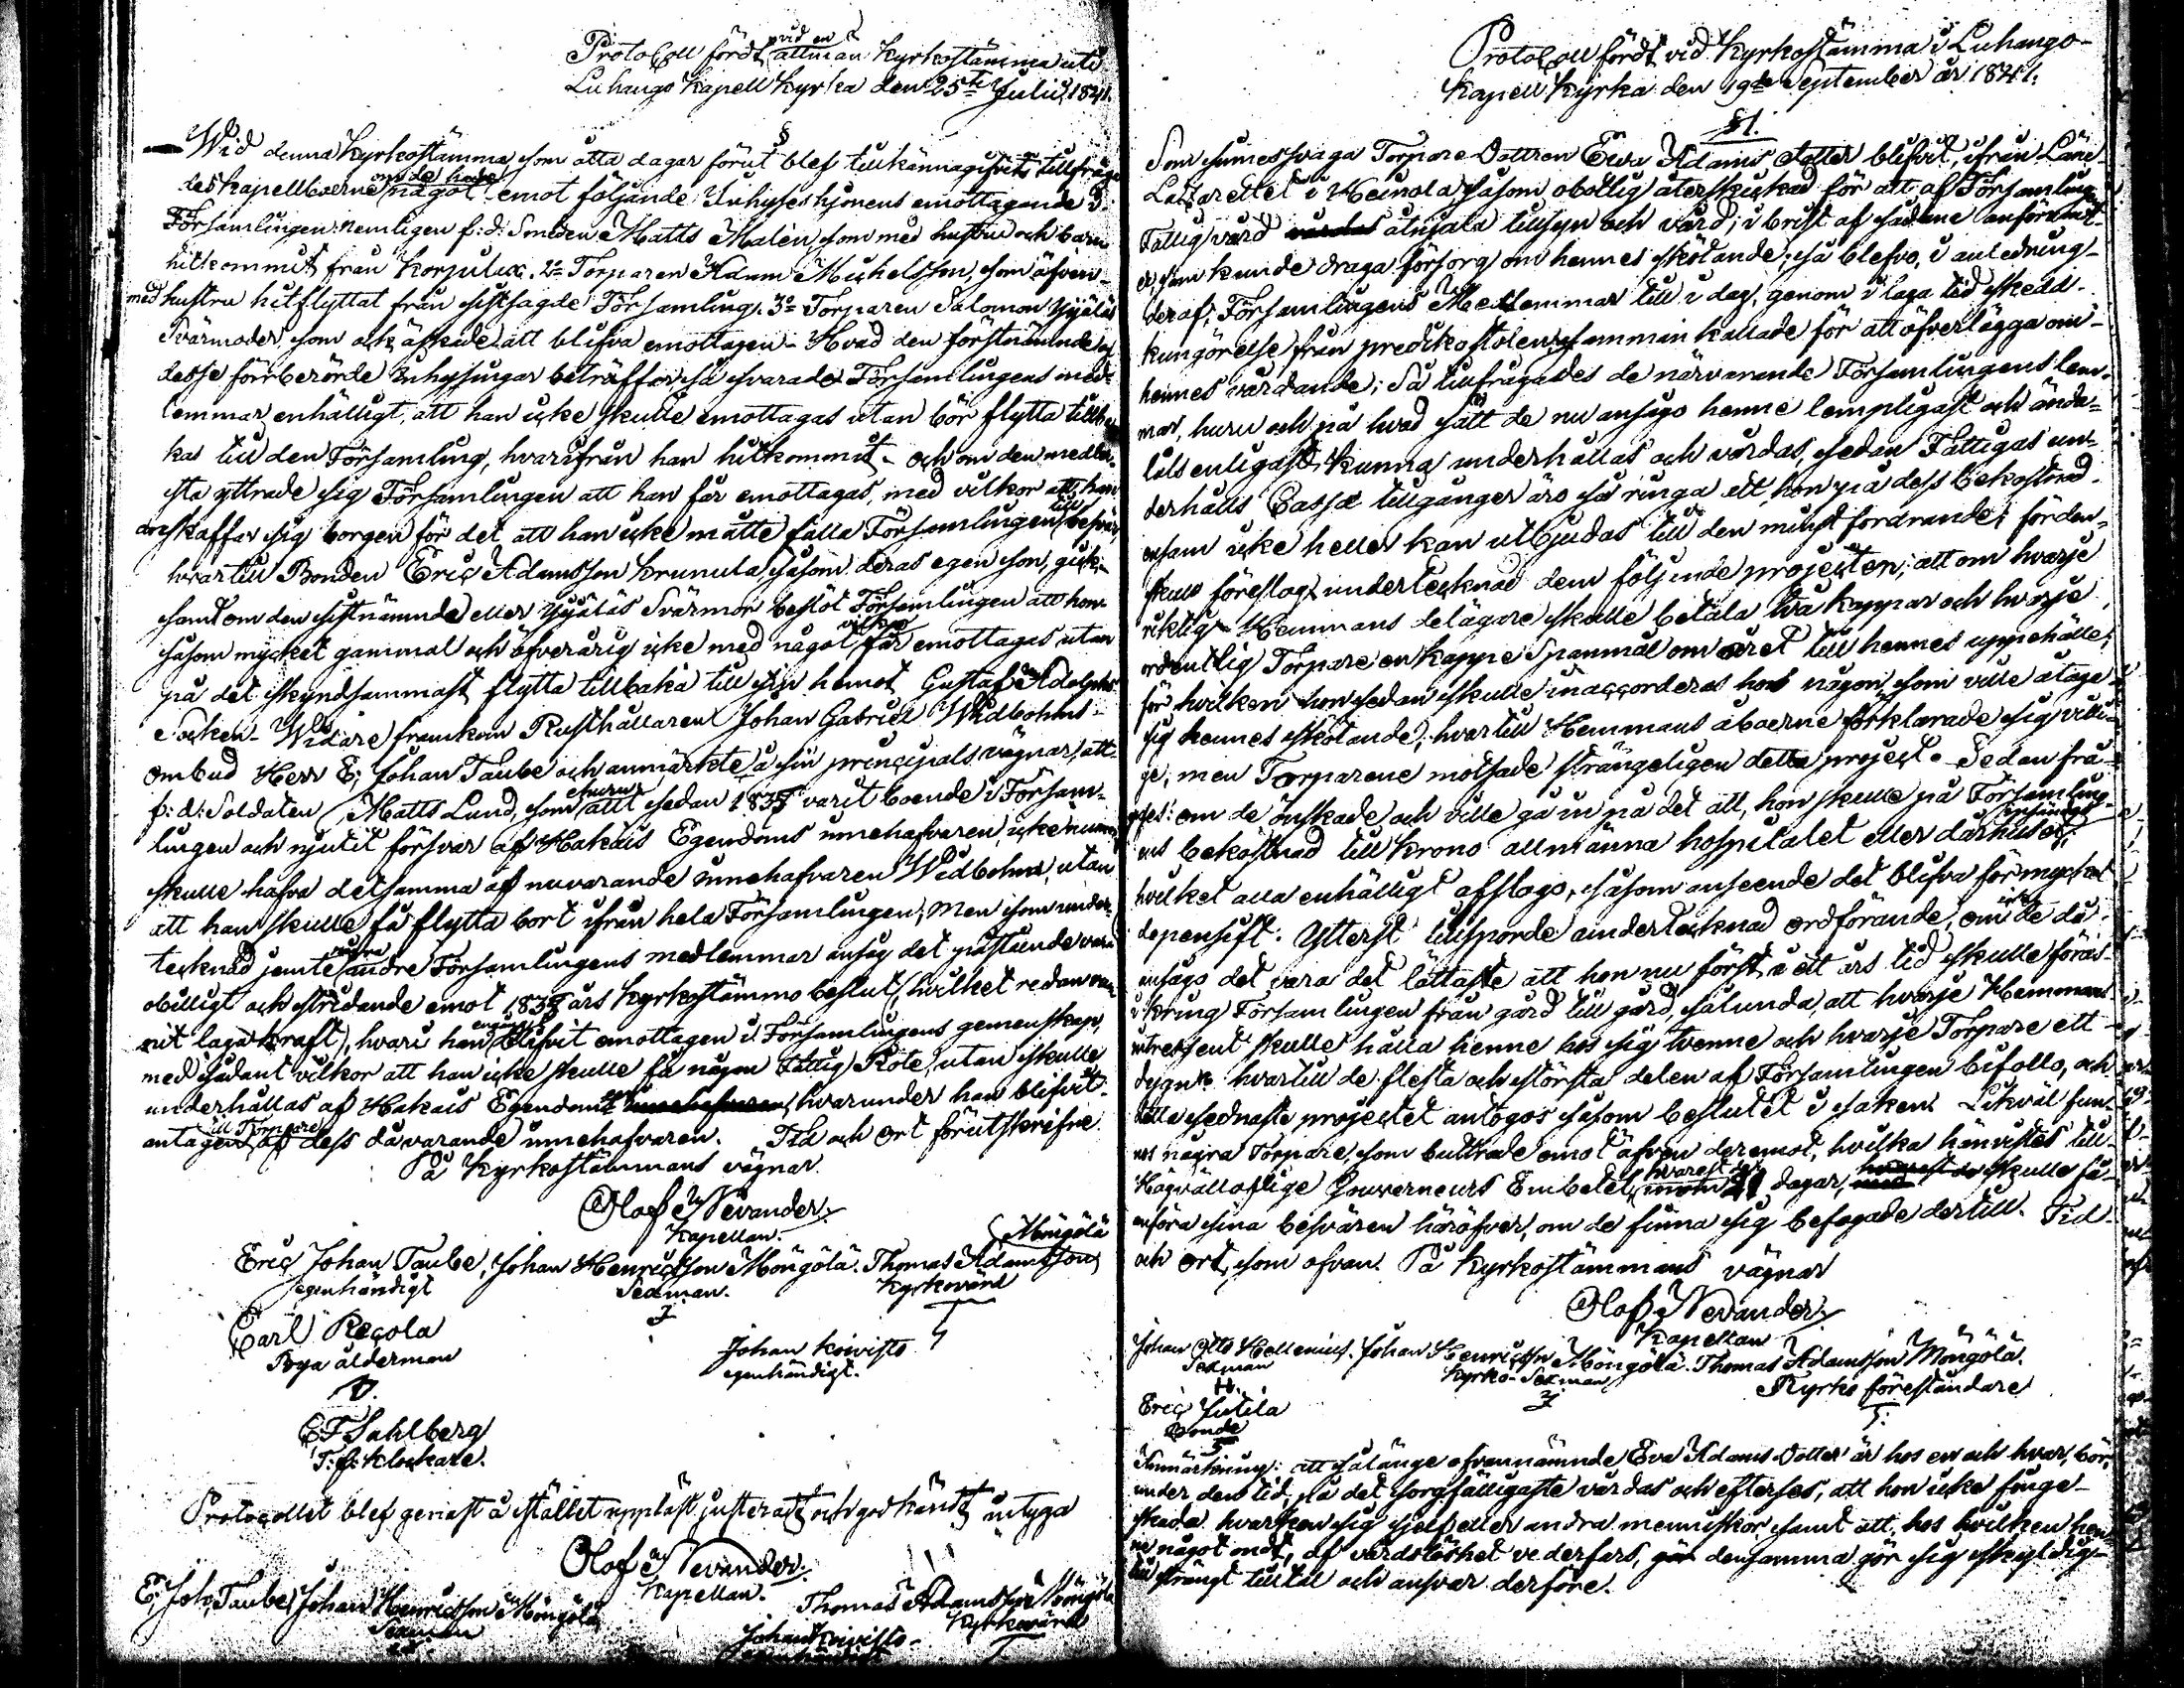 Protocoll fördt vid en allmän Kyrkostämma uti
Luhango Kapell Kyrka den 25te Julii 1841.
§
Wid denna Kyrkostämma, som åtta dagar förut blef tillkännagifvit, tillfråga-
des kapellboerne om de hade något emot följande Inhyseshjonens emottagande i
Församlingen: nemligen f: d: Smeden Matts Malén, som med hustru och barn
hitkommit från Korpilax. 2o Torparen Adam Michelsson, som äfven
med hustru hitflyttat från sistsagde Församling. 3o Torparen Salomon Yijäläs
Svärmoder, som ock äskade att blifva emottagen. Hvad den förstnämnde af
desse förrberörde Inhysingar beträffar, så svarade Församlingens med-
lemmar enhälligt, att han icke skulle emottagas utan bör flytta tillba-
kas till den Församling, hvarifrån han hitkommit. och om den medler-
sta yttrade sig Församlingen att han får emottagas, med vilkor att han
anskaffar sig borgen för det att han icke måtte falla Församlingen till besvär,
hvartill Bonden Eric Adamsson Krunula, såsom deras egen son, gick;
samt om den sistnämnde eller Yijäläs Svärmor beslöt Församlingen att hon
såsom mycket gammal och öfverårig icke med något vilkor får emottagas utan
på det skyndsammast flytta tillbaka till sin hemort Gustaf Adolphs
Socken. Widare framkom Rusthållaren Johan Gabriel Widbohms
ombud Herr E: Johan Taube och anmärkte å sin principals vägnar, att
f: d: Soldaten Matts Lund, som allt sedan 1837 varit boende i Försam-
lingen och njutit försvar af Hakais Egendoms innehafvaren, icke numera
skulle hafva detsamma af nuvarande innehafvaren Widbohm, utan
att han skulle få flytta bort ifrån hela Församlingen; Men som under-
tecknad jemte andre Församlingens medlemmar ansåg det påstående vara
obilligt och stridande emot 1838 års Kyrkostämmo beslut (hvilket redan vun-
nit laga kraft), hvari han blifvit emottagen i Församlingens gemenskap,
med sådant vilkor att han icke skulle få någon Fattig Rote, utan skulle
underhållas af Hakais Egendom, hvarunder han blifvit
antagen till Torpare af dess dåvarande innehafvaren. Tid och Ort förutskrifne.
På Kyrkostämmans vägnar.
Olof Nevander
Kapellan.
Eric Johan Taube, Johan Henricsson Möngölä. Thomas Adamsson Möngölä
egenhändigt Sexman. Kyrkovärd
Carl Recola Johan Koivisto
Byaålderman egenhändigt.
E F Sahlberg
T: f: Klockare.
Protocollet blef genast å stället uppläst, justeradt och godkändt, intyga
Olof Nevander
Kapellan.
E: Joh: Taube, Johan Henricsson Möngölä Thomas Adamsson Möngölä
Sexman Kyrkovärd
Johan Koivisto
egenhändigt
Protocoll fördt vid Kyrkostämma i Luhango
Kapell Kyrka den 19de September år 1841.
§1.
Som sinnessvaga Torpare Dottren Ewa Adams dotter blifvit, ifrån Läne
Lazarettet i Heinola, såsom obotlig återskickad för att af Församling.
Fattigvård åtnjuta tillsyn och vård; i brist af sådane anförvandt-
er, som kunde draga försorg om hennes skötande; så blefvo, i anledning
deraf, Församlingens Medlemmar till i dag, genom i laga tid skedd
kungörelse från predikostolen, sammankallade för att öfverlägga om
hennes vårdande; Då tillfrågades de närvarande Församlingens lem-
mar, huru och på hvad sätt de nu ansågo henne lempligast och ända-
målsenligast kunna underhållas och vårdas, sedan Fattigas un-
derhålls Cassæ tillgånger äro så ringa att hon på dess bekostnad
ensam icke heller kan utbjudas till den minst fordrande; förden-
skull föreslog undertecknad dem följande projecten; att om hvarje
riktig Hemmans delägare skulle betala två kappar och hvarje
ordentlig Torpare en kappe Spanmål om året till hennes uppehälle,
för hvilken hon sedan skulle inaccorderas hos någon, som ville åtaga
sig hennes skötande, hvartill Hemmans åboerne förklarade sig villi-
ge, men Torparene motsade strängeligen detta project. Sedan frå-
gades: om de önskade och ville gå in på det att, hon skulle på Församling-
ens bekostnad till Krono allmänna hospitalet eller dårhuset,
hvilket alla enhälligt afslogo, såsom anseende det blifva för mycket
depensift. Ytterst tillsporde undertecknad ordförande, om icke de då
ansågo det vara det lättaste att hon nu först i ett års tid skulle föras
ikring Församlingen från gård till gård, sålunda, att hvarje Hemmans
intressent skulle hålla henne hos sig tvenne och hvarje Torpare ett
dygn, hvartill de flesta och största delen af Församlingen biföllo, och
detta sednaste projectet antogos såsom beslutet i saken. Likväl fun-
nos några Torpare, som bullrade emot äfven deremot, hvilka hänvistes till
Högvälloflige Gouverneurs Embetet, hvarest de inom 21 dagar, skulle få
anföra sina besvären häröfver, om de finna sig befogade dertill. Tid
och Ort, som ofvan. På Kyrkostämmans vägnar
Olof Nevander
Kapellan
Johan Otto Hellenius. Johan Henricsson Möngölä. Thomas Adamsson Möngölä.
Sexman Kyrko-Sexman Kyrko föreståndare
Eric Jutila
Bonde
Anmärkning: att sålänge ofvannämnde Eva Adams Dotter är hos en och hvar, bör
under den tid, på det sorgfälligaste vårdas och efterses, att hon icke finge
skada hvarken sig sjelf eller andra menniskor samt att, hos hvilken hen-
ne något ondt, af vårdslöshet vederfars, densamma gör sig skyldig
till strängt tilltal och ansvar derföre.